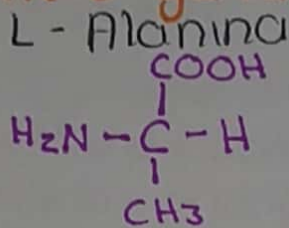 L - Alanina
COOH
H₂N - C - H
CH3